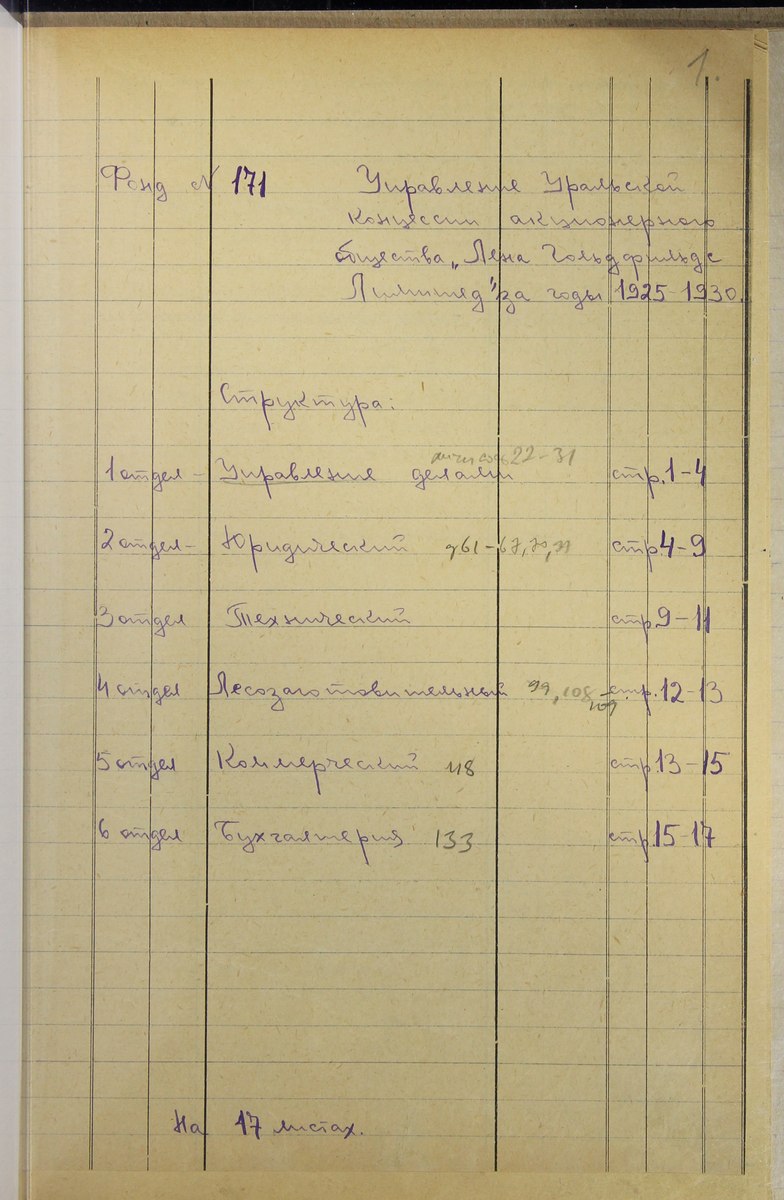 1.
Фонд № 171 Управление Уральской
концессии акционерного
общества „Лена Гольдфильдс
Лимитед" за годы 1925-1930.
Структура:
22-31
1 отдел - Управление делами стр. 1-4
2 отдел - Юридический 61-67, 70, 71 стр. 4-9
3 отдел Технический стр. 9-11
4 отдел Лесозаготовительный 99, 108-109 стр. 12-13
5 отдел Коммерческий 118 стр. 13-15
6 отдел Бухгалтерия 133 стр. 15-17
На 17 листах.